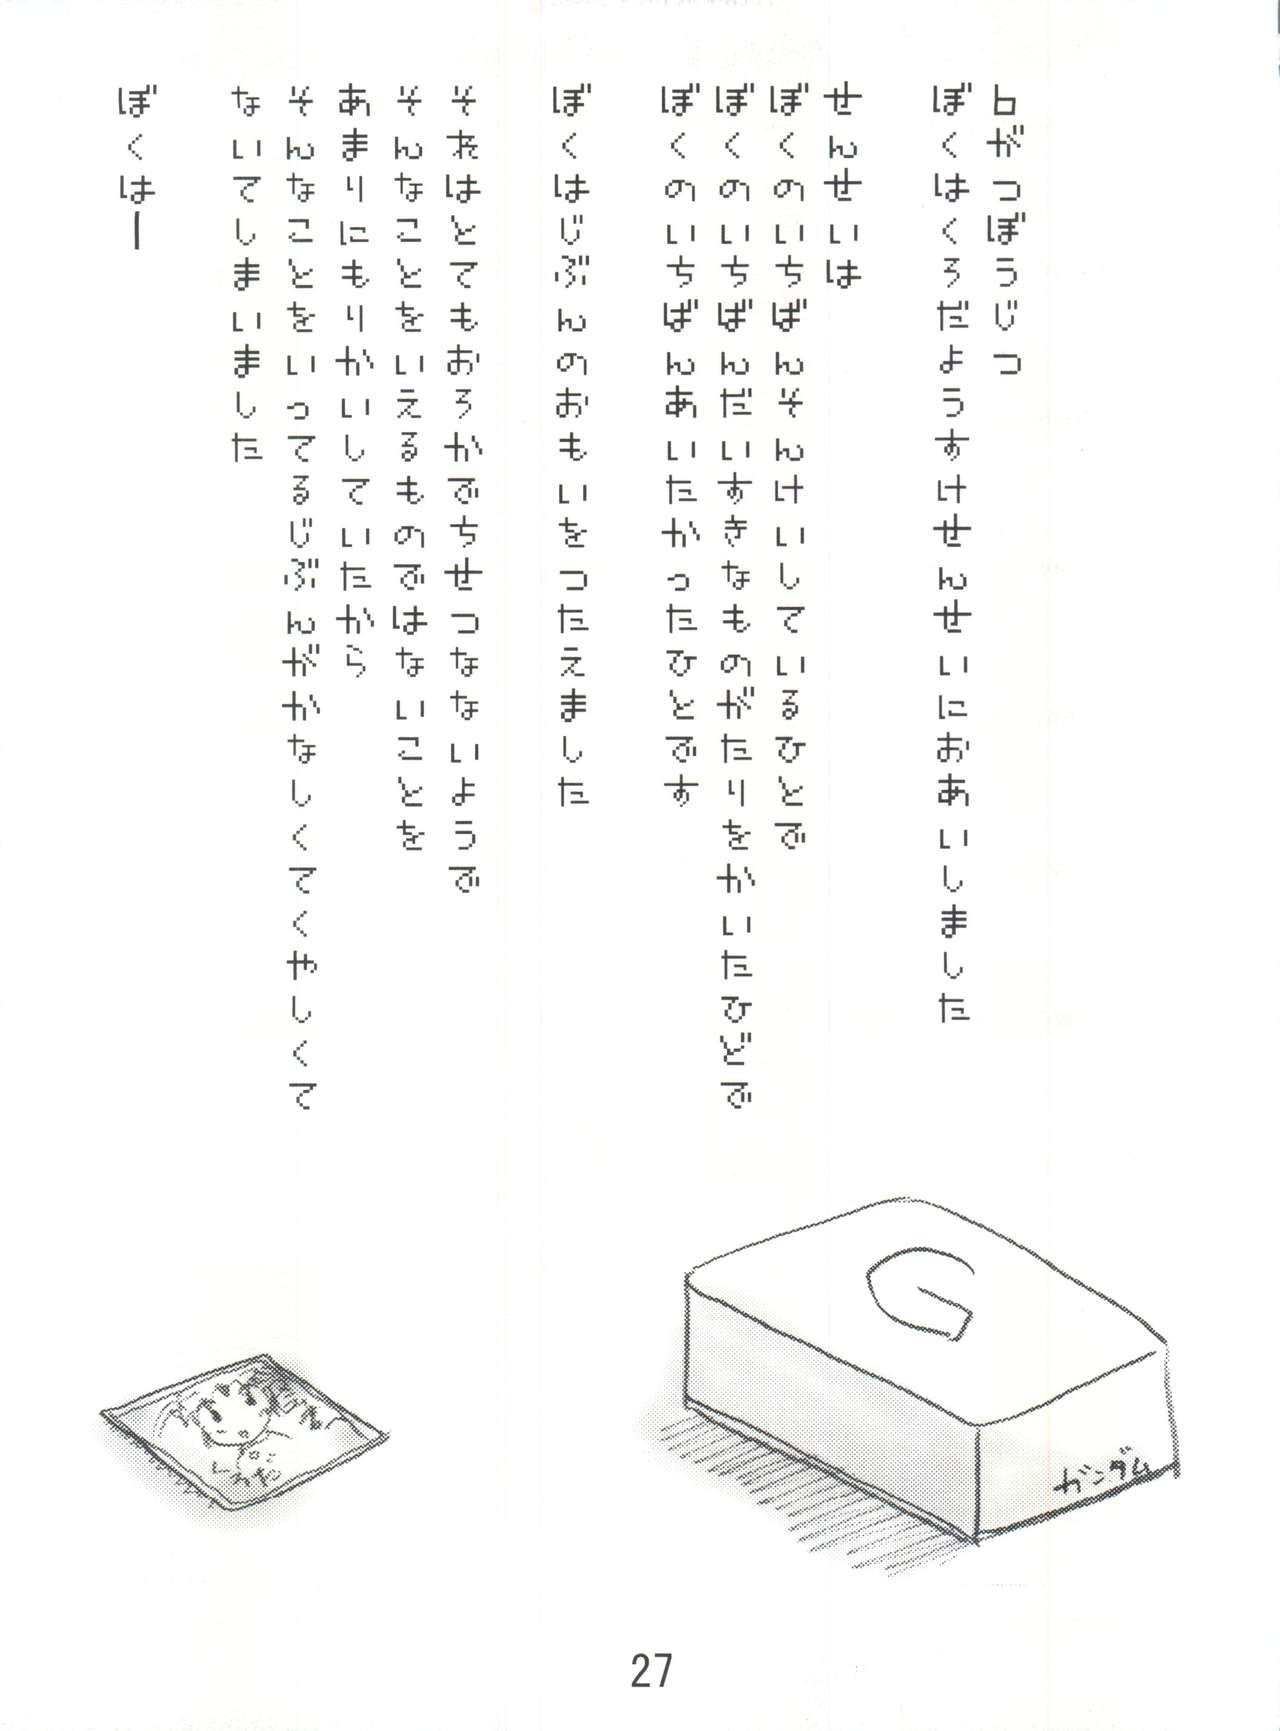 6がつぼうじつ
ぼくはくろだようすけせんせいにおあいしました
せんせいは
ぼくのいちばんそんけいしているひとで
ぼくのいちばんだいすきなものがたりをかいたひどで
ぼくのいちばんあいたかったひとです
ぼくはじぶんのおもいをつたえました
それはとてもおろかでちせつなないようで
そんなことをいえるものではないことを
あまりにもりかいしていたから
そんなことをいってるじぶんがかなしくてくやしくて
ないてしまいました
ぼくはー
G
ガンダム
27